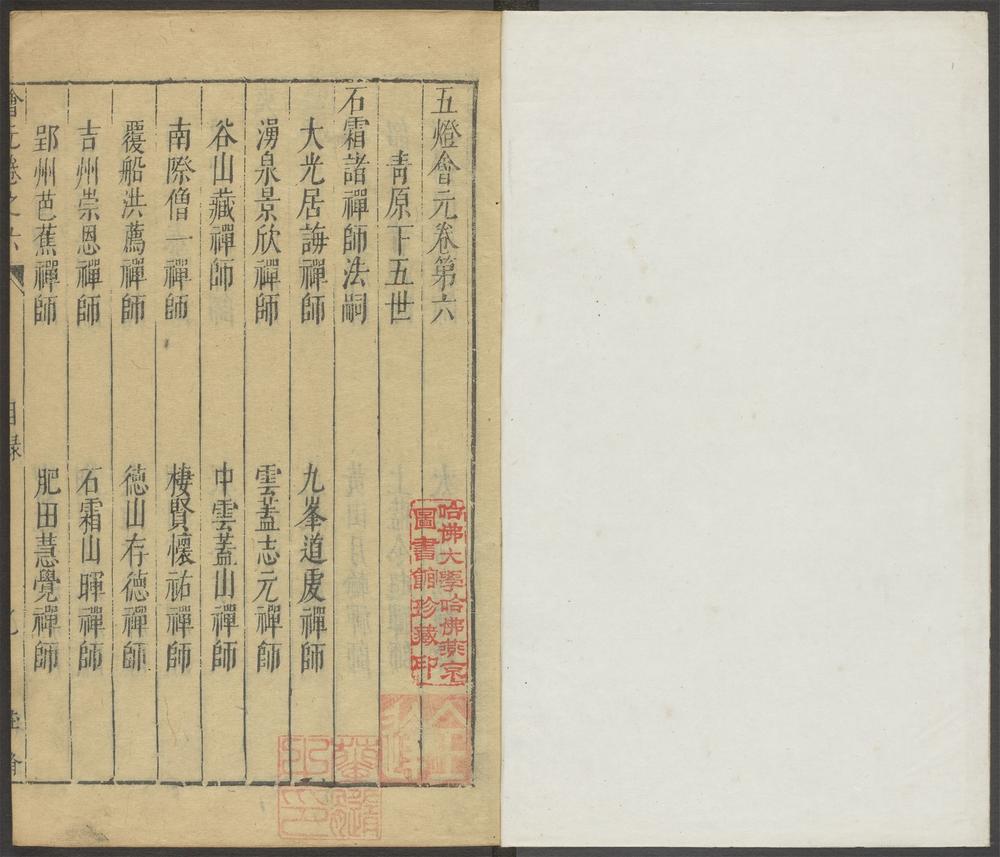 五燈會元卷第六
青原下五世
石霜諸禪師法嗣
大光居誨禪師
九峯道虔禪師
湧泉景欣禪師
雲蓋志元禪師
谷山藏禪師
中雲蓋山禪師
南際僧一禪師
棲賢懷祐禪師
覆船洪薦禪師
德山存德禪師
吉州崇恩禪師
石霜山暉禪師
郢州芭蕉禪師
肥田慧覺禪師
會元卷之六
目錄
哈佛大學哈佛燕京
圖書館珍藏印